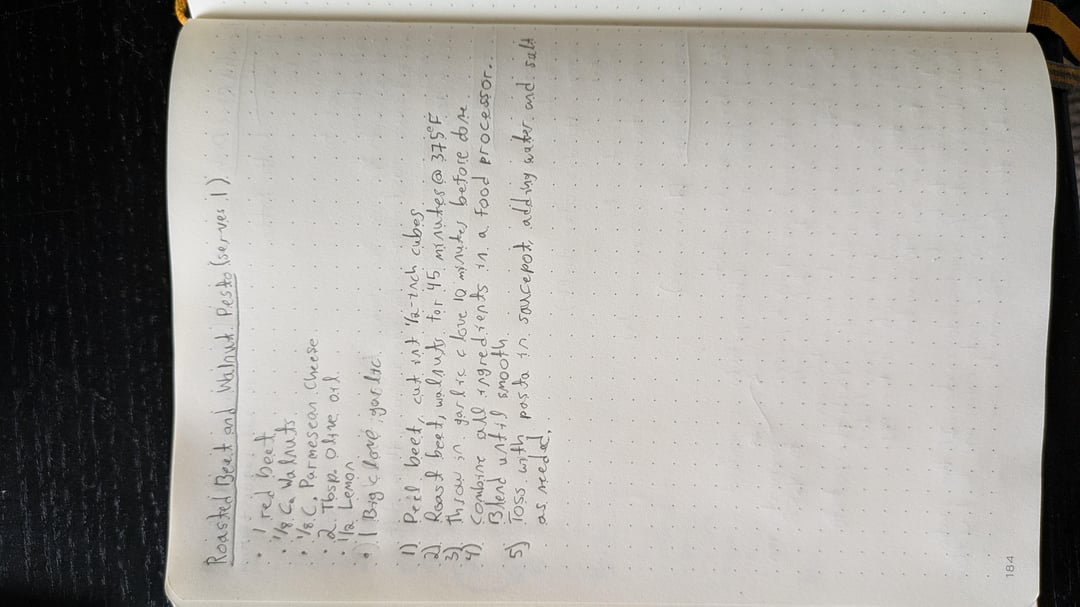 Roasted Beet and Walnut Pesto (serves 1)
• 1 red beet
• 1/8 C. Walnuts
• 1/8 C. Parmesean Cheese
• 2 Tbsp. Olive oil
• 1/2 Lemon
• 1 Big clove garlic
1) Peel beet, cut int 1/2-inch cubes
2) Roast beet, walnuts for 45 minutes @ 375°F
3) Throw in garlic clove 10 minutes before done
4) Combine all ingredients in a food processor.
Blend until smooth
5) Toss with pasta in saucepot, adding water and salt
as needed.
184